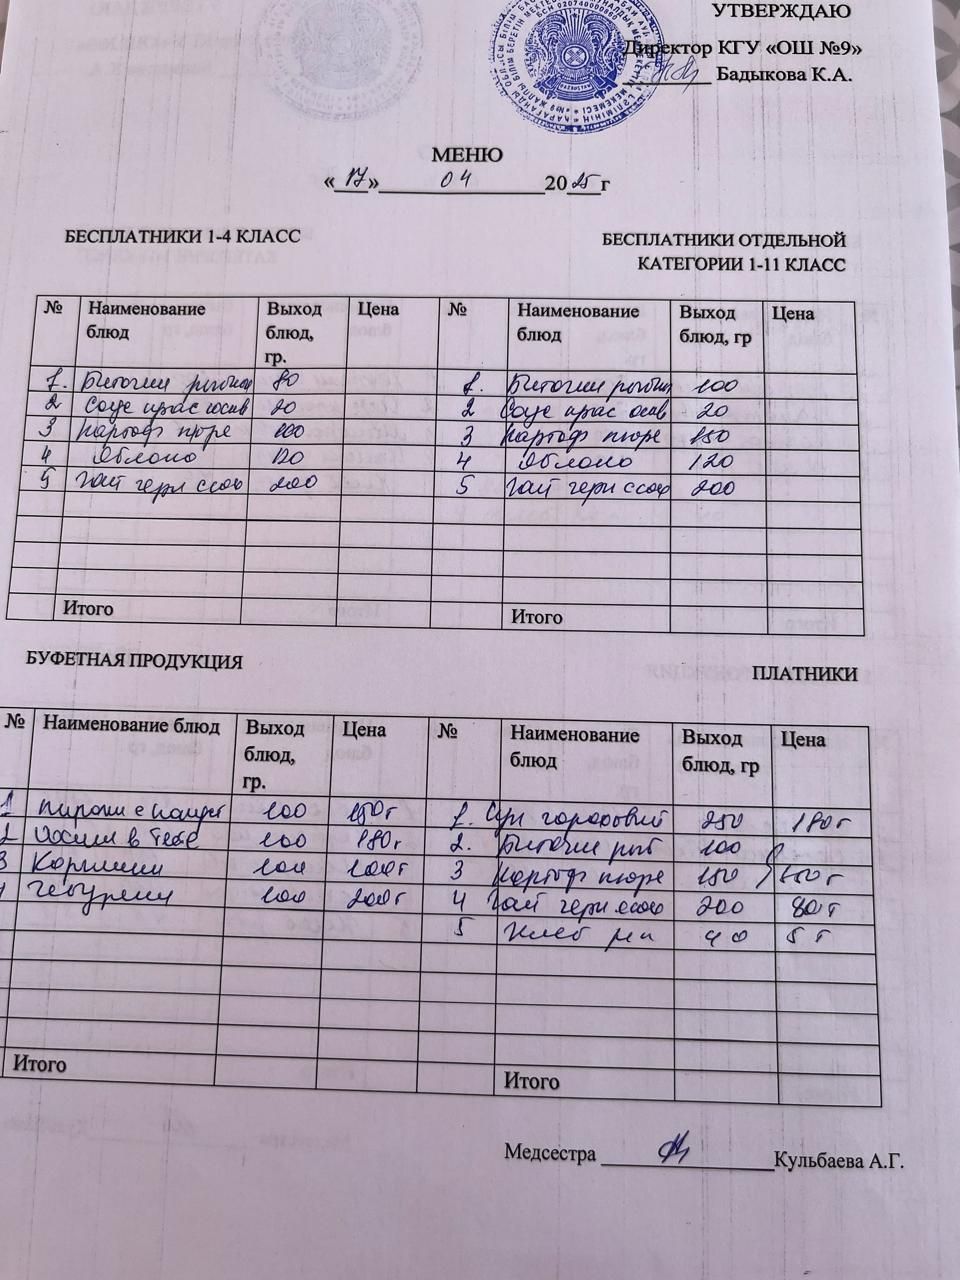 УТВЕРЖДАЮ
Директор КГУ «ОШ №9»
Бадыкова К.А.
БСН 020740000860
KAZAKHSTAN
МЕНЮ
«17» 04 2025г
БЕСПЛАТНИКИ 1-4 КЛАСС
БЕСПЛАТНИКИ ОТДЕЛЬНОЙ
КАТЕГОРИИ 1-11 КЛАСС
№ Наименование блюд Выход блюд, гр. Цена № Наименование блюд Выход блюд, гр Цена
1. Биточки рыбн 80 1. Биточки рыбн 100
2 Соус крас основ 20 2 Соус крас осн 20
3 Картоф пюре 100 3 Картоф пюре 150
4 Яблоко 120 4 Яблоко 120
5 Чай черн сах 200 5 Чай черн с сах 200
Итого Итого
БУФЕТНАЯ ПРОДУКЦИЯ
ПЛАТНИКИ
№ Наименование блюд Выход блюд, гр. Цена № Наименование блюд Выход блюд, гр Цена
1 пирожки с капуст 100 150т 1. Суп гороховый 250 180т
2 Сосиски в тесте 100 180т 2. Биточки рыб 100
3 Коржики 100 100т 3 Картоф пюре 150
4 чебуреки 100 200т 4 Чай черн с сах 200 80т
5 Хлеб рж 40 5т
Итого Итого
Медсестра Кульбаева А.Г.